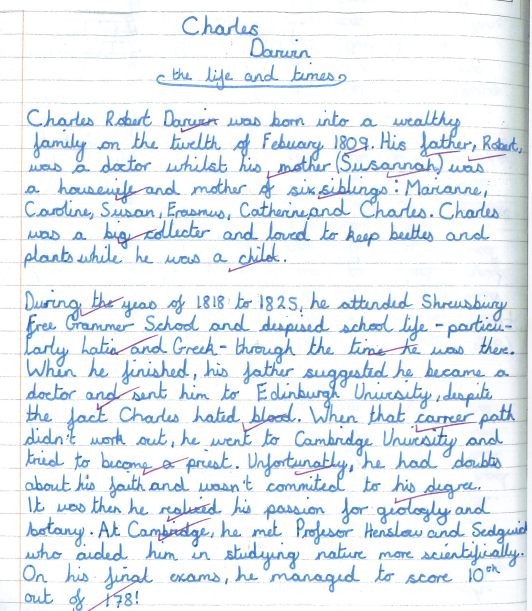 Charles
Darwin
the life and times
Charles Robert Darwin was born into a wealthy
family on the twelth of Febuary 1809. His father, Robert,
was a doctor whilst his mother (Susannah) was
a housewife and mother of six siblings: Marianne,
Caroline, Susan, Erasmus, Catherine, and Charles. Charles
was a big collecter and loved to keep beetles and
plants while he was a child.
During the years of 1818 to 1825, he attended Shrewsbury
Free Grammer School and despised school life - particu-
larly Latin and Greek - through the time he was there.
When he finished, his father suggested he became a
doctor and sent him to Edinburgh University, despite
the fact Charles hated blood. When that carreer path
didn't work out, he went to Cambridge University and
tried to become a priest. Unfortunatly, he had doubts
about his faith and wasn't commited to his degree.
It was then he realised his passion for geologly and
botany. At Cambridge, he met Profesor Henslow and Sedgwick
who aided him in studying nature more scientifically.
On his final exams, he managed to score 10th
out of 178!